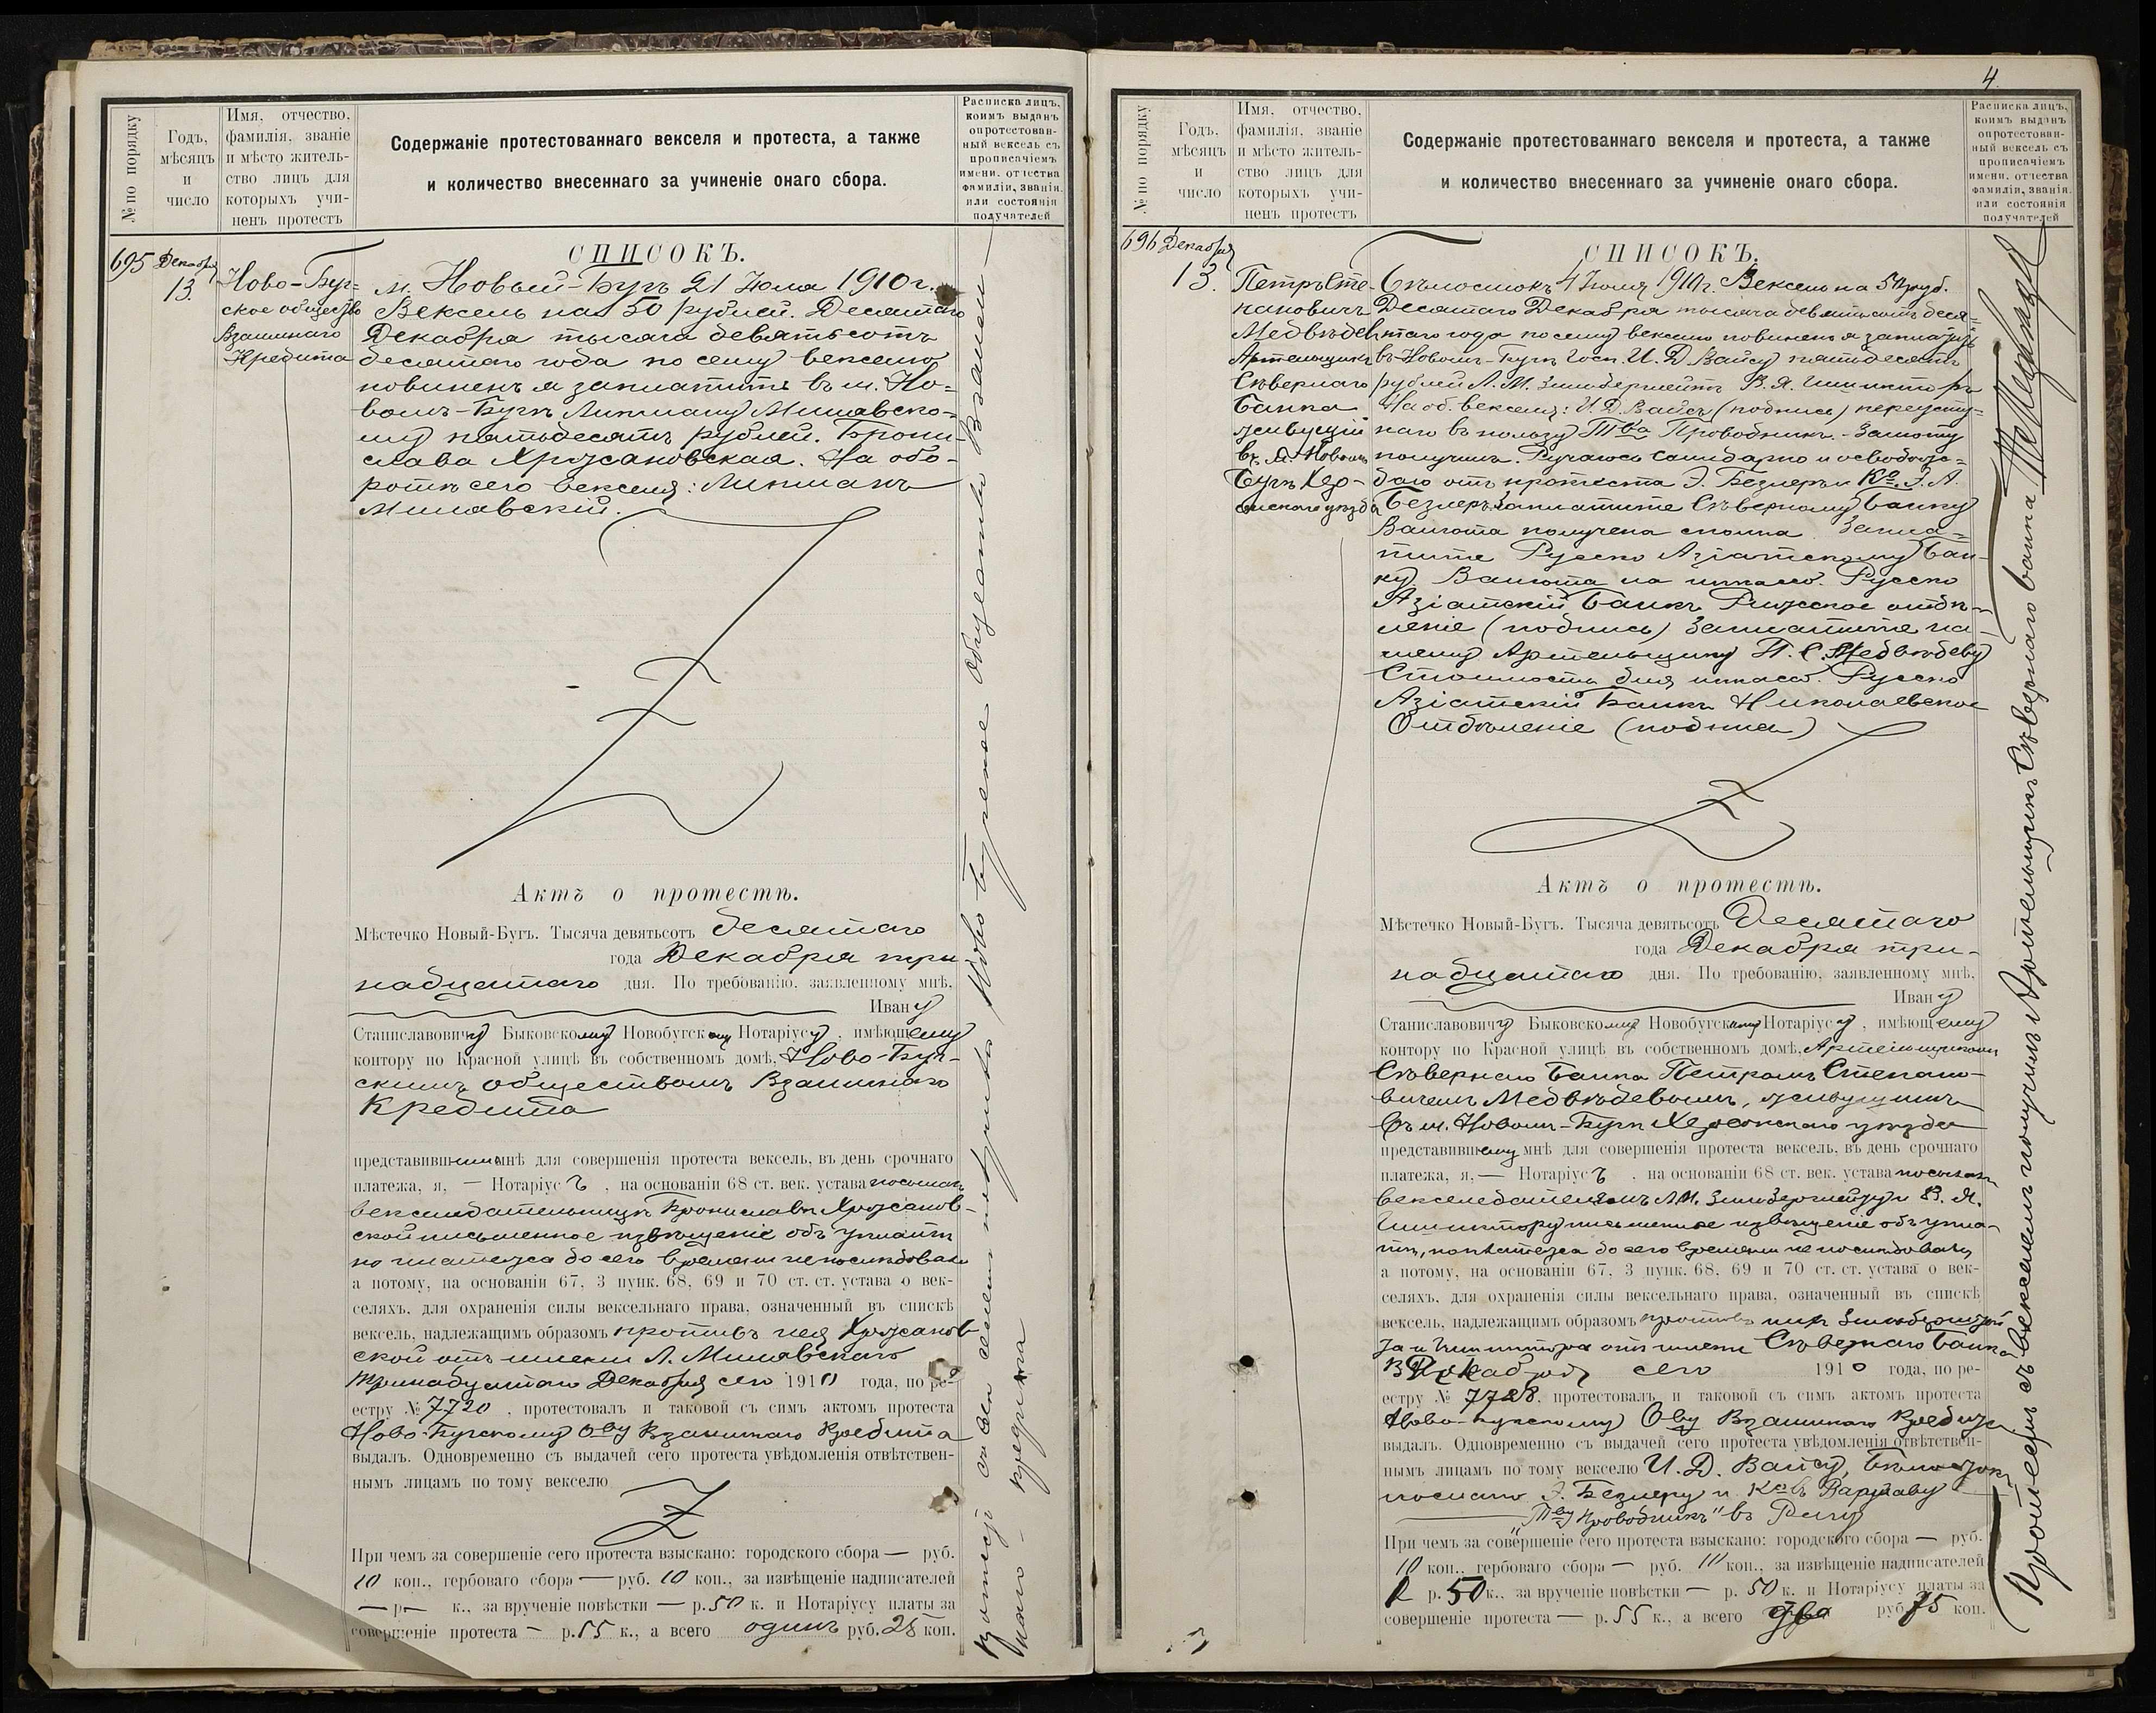 № по порядку
Годъ,
мѣсяцъ
и
число
Имя, отчество,
фамилія, званіе
и мѣсто житель-
ство лицъ для
которыхъ учи-
ненъ протестъ
Содержаніе протестованнаго векселя и протеста, а также
и количество внесеннаго за учиненіе онаго сбора.
Расписка лицъ,
коимъ выданъ
опротестован-
ный вексель съ
прописаніемъ
имени, отчества
фамиліи, званія,
или состоянія
получателей
695 Декабря
13.
Ново-Буг-
ское общество
Взаимнаго
Кредита
СПИСОКЪ.
м. Новый-Бугъ 21 Юля 1910 г.
Вексель на 50 рублей. Десятаго
Декабря тысяча девятьсотъ
десятаго года по сему векселю
повиненъ я заплатить въ м. Но-
вомъ-Бугѣ Липману Милявско-
му пятьдесятъ рублей. Брони-
слава Хржановская. На обо-
ротѣ сего векселя: Липманъ
Милявскій.
Актъ о протестѣ.
Мѣстечко Новый-Бугъ. Тысяча девятьсотъ десятаго
года Декабря три-
надцатаго дня. По требованію, заявленному мнѣ,
Ивану
Станиславовичу Быковскому Новобугскому Нотаріусу, имѣющему
контору по Красной улицѣ въ собственномъ домѣ, Ново-Буг-
скимъ обществомъ Взаимнаго
Кредита
представившимъ мнѣ для совершенія протеста вексель, въ день срочнаго
платежа, я, — Нотаріусъ, на основаніи 68 ст. век. устава посылалъ
векселедательницѣ Брониславѣ Хржанов-
ской письменное извѣщеніе объ уплатѣ
но платежа до сего времени не послѣдовало
а потому, на основаніи 67, 3 пунк. 68, 69 и 70 ст. ст. устава о век-
селяхъ, для охраненія силы вексельнаго права, означенный въ спискѣ
вексель, надлежащимъ образомъ противъ нея Хржанов-
ской отъ имени Л. Милявскаго
Тринадцатаго Декабря сего 1910 года, по ре-
естру № 7720, протестовалъ и таковой съ симъ актомъ протеста
Ново-Бугскому О-ву Взаимнаго Кредита
выдалъ. Одновременно съ выдачей сего протеста увѣдомленія отвѣтствен-
нымъ лицамъ по тому векселю
При чемъ за совершеніе сего протеста взыскано: городского сбора — руб.
10 коп., гербоваго сбора — руб. 10 коп., за извѣщеніе надписателей
— р. — к., за врученіе повѣстки — р. 50 к. и Нотаріусу платы за
совершеніе протеста — р. 55 к., а всего одинъ руб. 25 коп.
Ново Бугское Общество Взаимн
наго кредита
4.
№ по порядку
Годъ,
мѣсяцъ
и
число
Имя, отчество,
фамилія, званіе
и мѣсто житель-
ство лицъ для
которыхъ учи-
ненъ протестъ
Содержаніе протестованнаго векселя и протеста, а также
и количество внесеннаго за учиненіе онаго сбора.
Расписка лицъ,
коимъ выданъ
опротестован-
ный вексель съ
прописаніемъ
имени, отчества
фамиліи, званія,
или состоянія
получателей
696 Декабря
13.
Петръ Сте-
пановичъ
Медвѣдевъ
Артельщикъ
Сѣвернаго
Банка
живущій
въ м. Новомъ
Бугѣ Хер-
сонскаго уѣзда
СПИСОКЪ.
Бѣлостокъ 4 Юля 1910 г. Вексель на 50 руб.
Десятаго Декабря тысяча девятьсотъ деся-
таго года по сему векселю повиненъ я заплатить
въ Новомъ-Бугѣ Госп. И. Д. Вайсу пятьдесятъ
рублей Л. М. В. Я.
На об. векселя: И. Д. Вайсъ (подпись)
въ пользу Т-ва Проводникъ.
получилъ. Ручаюсь солидарно и освобож-
даю отъ протеста Э. Безлеръ и Ко. Э. А.
Безлеръ. Заплатите Сѣверному Банку
Валюта получена сполна. Запла-
тите Русско Азіатскому Бан-
ку Валюта на инкассо. Русско
Азіатскій Банкъ Рижское отдѣ-
леніе (подпись) Заплатите на-
шему Артельщику П. С. Медвѣдеву
Стоимость для инкассо. Русско
Азіатскій Банкъ Николаевское
Отдѣленіе (подписи)
Актъ о протестѣ.
Мѣстечко Новый-Бугъ. Тысяча девятьсотъ Десятаго
года Декабря три-
надцатаго дня. По требованію, заявленному мнѣ,
Ивану
Станиславовичу Быковскому Новобугскому Нотаріусу, имѣющему
контору по Красной улицѣ въ собственномъ домѣ, Артельщикомъ
Сѣвернаго Банка Петромъ Степано-
вичемъ Медвѣдевымъ, живущимъ
въ м. Новомъ-Бугѣ Херсонскаго уѣзда
представившему мнѣ для совершенія протеста вексель, въ день срочнаго
платежа, я, — Нотаріусъ, на основаніи 68 ст. век. устава посылалъ
векселедателямъ Л. М. и В. Я.
письменное извѣщеніе объ упла-
тѣ, но платежа до сего времени не послѣдовало
а потому, на основаніи 67, 3 пунк. 68, 69 и 70 ст. ст. устава о век-
селяхъ, для охраненія силы вексельнаго права, означенный въ спискѣ
вексель, надлежащимъ образомъ противъ нихъ
отъ имени Сѣвернаго Банка
13 Декабря сего 1910 года, по ре-
естру № 7728, протестовалъ и таковой съ симъ актомъ протеста
Ново-Бугскому О-ву Взаимнаго Кредита
выдалъ. Одновременно съ выдачей сего протеста увѣдомленія отвѣтствен-
нымъ лицамъ по тому векселю И. Д. Вайсу, Бѣлостокъ
послано Э. Безлеру и Ко въ Варшаву
Т-ву „Проводникъ" въ Ригу
При чемъ за совершеніе сего протеста взыскано: городского сбора — руб.
10 коп., гербоваго сбора — руб. 10 коп., за извѣщеніе надписателей
1 р. 50 к., за врученіе повѣстки — р. 50 к. и Нотаріусу платы за
совершеніе протеста — р. 55 к., а всего два руб. 75 коп.
Протестъ съ векселемъ получилъ Артельщикъ Сѣвернаго банка П Медвѣдевъ